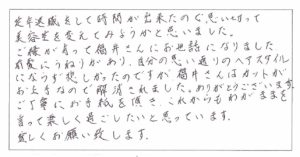 定年退職をして時間が出来たので思い切って
美容室を変えてみようかと思いました。
ご縁が有って福井さんにお世話になりました
有髪にうねりがあり、自分の思い通りのヘアスタイル
にならず悲しかったのですが福井さんはカットが
お上手なので解消されました。ありがとうございます。
ご丁寧にお手紙を頂き、これからもわがままを
言って楽しく過ごしたいと思っています。
宜しくお願い致します。